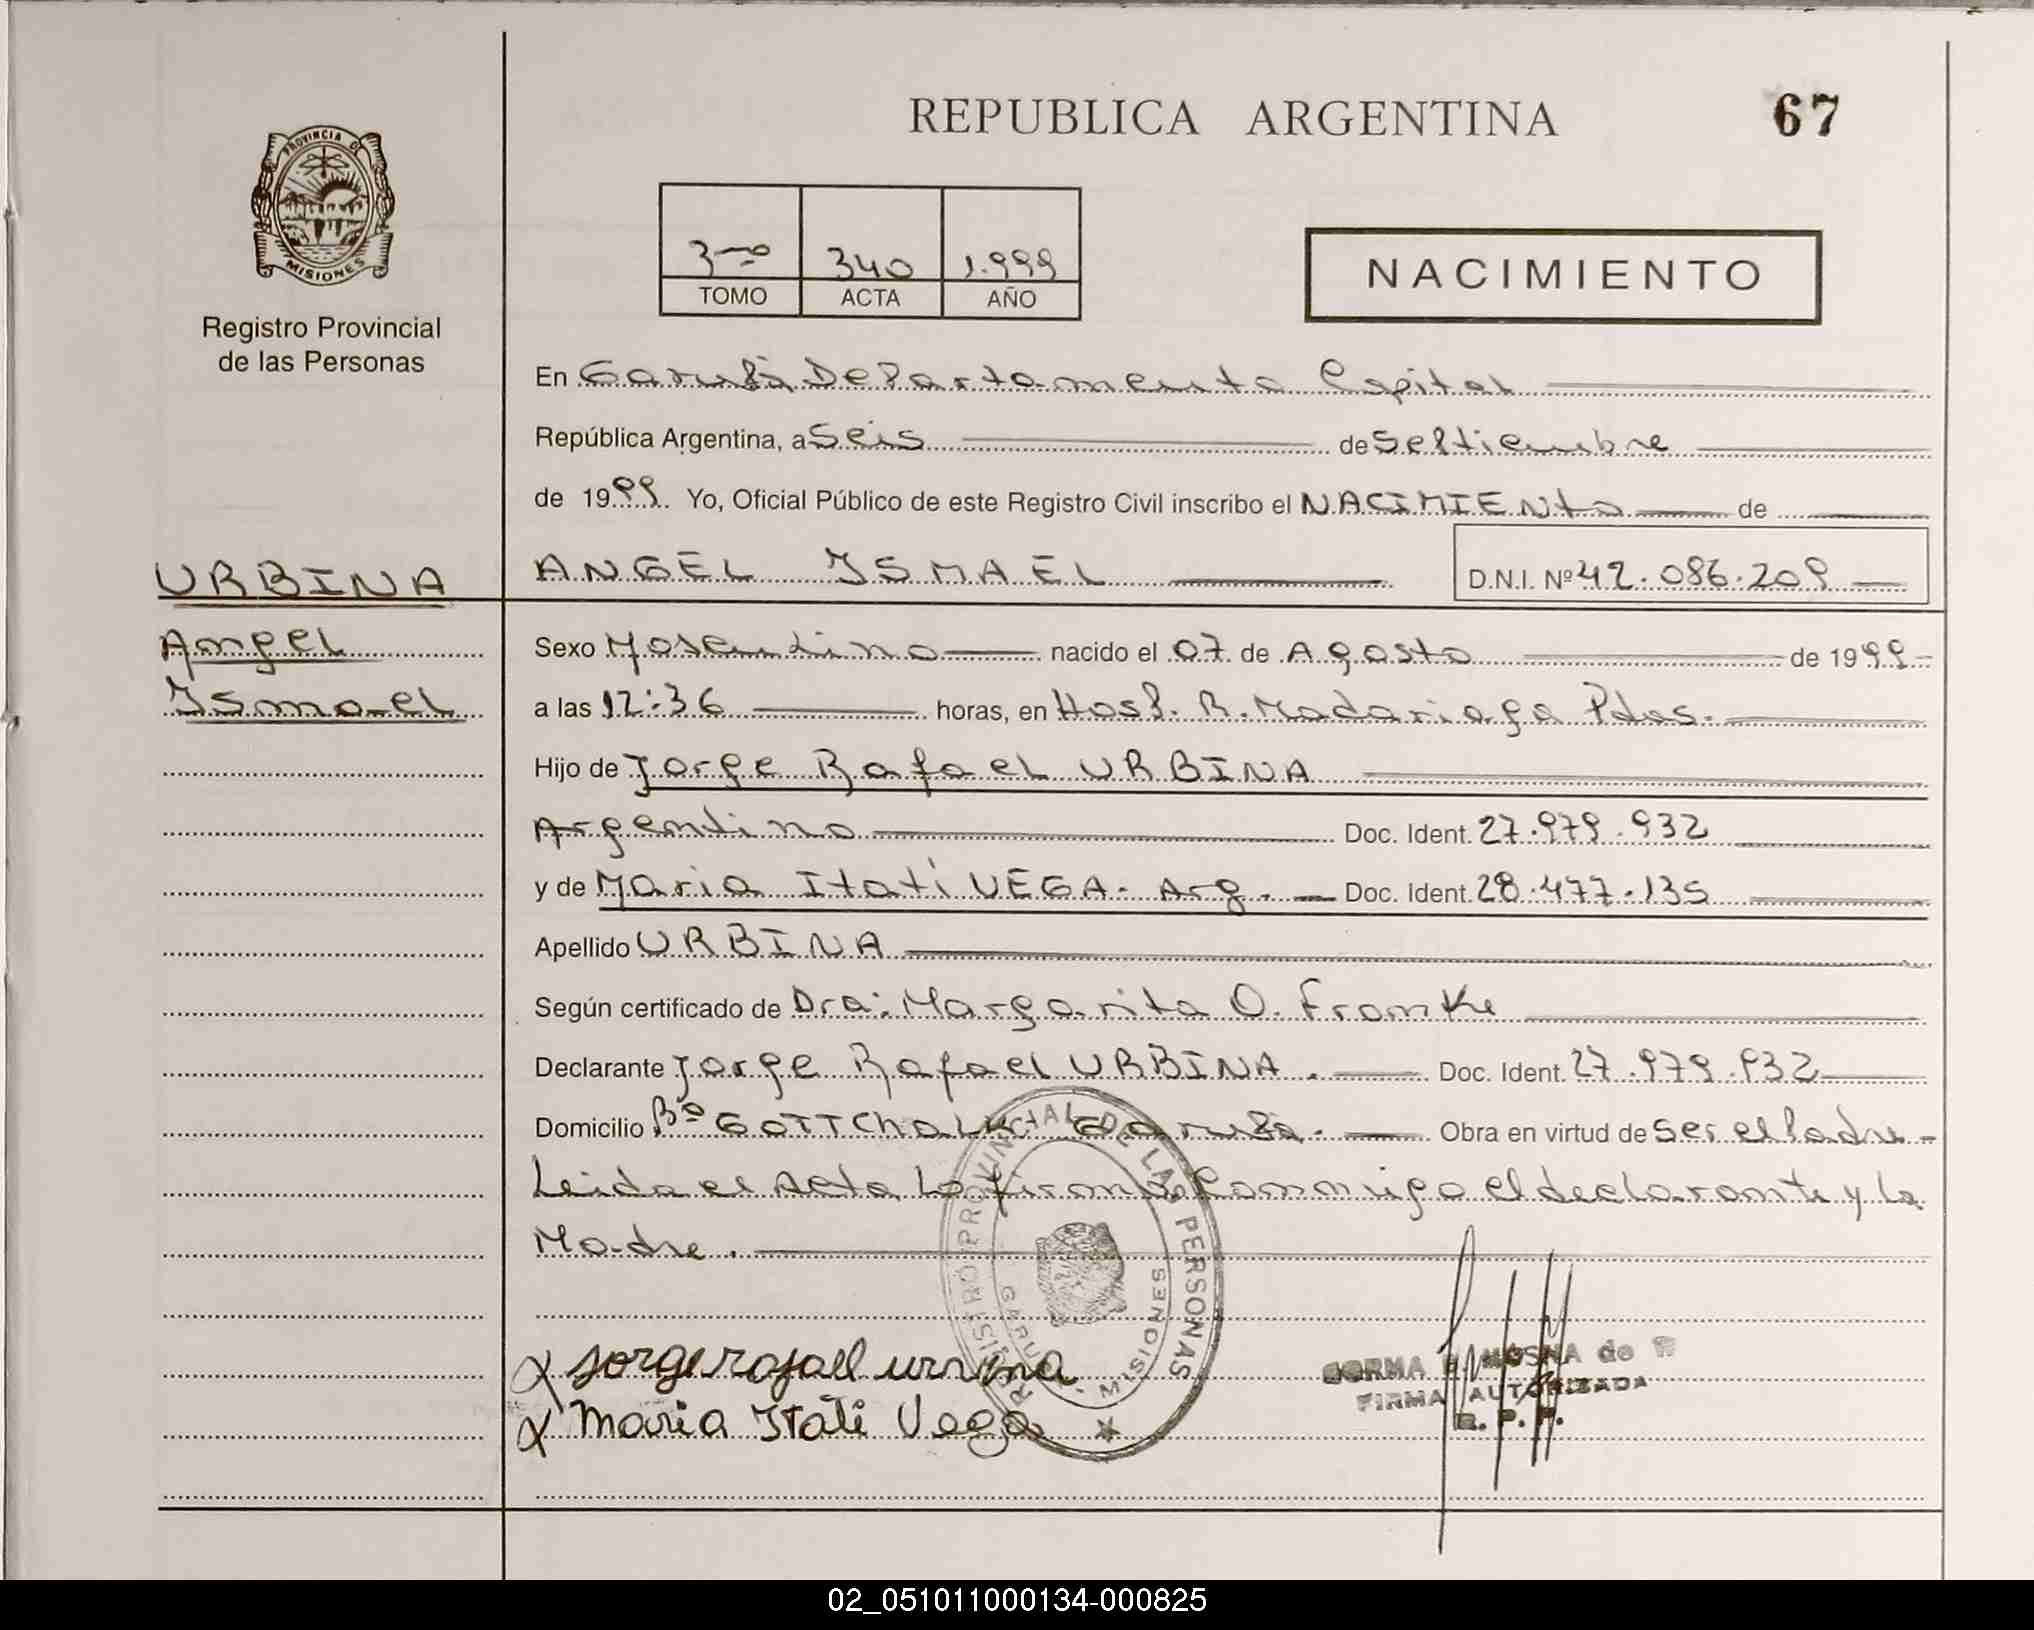 REPUBLICA ARGENTINA
67
PROVINCIA DE
MISIONES
Registro Provincial
de las Personas
3ro 340 1.999
TOMO ACTA AÑO
NACIMIENTO
En Garupá Departamento Capital
República Argentina, a Seis de Septiembre
de 1999. Yo, Oficial Público de este Registro Civil inscribo el NACIMIENto de
URBINA
ANGEL ISMAEL D.N.I. Nº 42.086.209
Angel
Ismael
Sexo Masculino nacido el 07 de Agosto de 1999
a las 12:36 horas, en Hosp. R. Madariaga Pdas.
Hijo de Jorge Rafael URBINA
Argentino Doc. Ident. 27.979.932
y de Maria Itatí VEGA. Arg. Doc. Ident. 28.477.135
Apellido URBINA
Según certificado de Dra: Margarita O. Franke
Declarante Jorge Rafael URBINA. Doc. Ident. 27.979.932
Domicilio Bº GOTTChaLK Garupá. Obra en virtud de Ser el Padre
Leida el Acta, La firman Conmigo el declarante y La
Madre.
REGISTRO PROVINCIAL DE LAS PERSONAS
GARUPA MISIONES
x jorge rafael urvina
x Maria Itati Vega
MOSNA de
FIRMA AUTORIZADA
R. P. P.
02_051011000134-000825